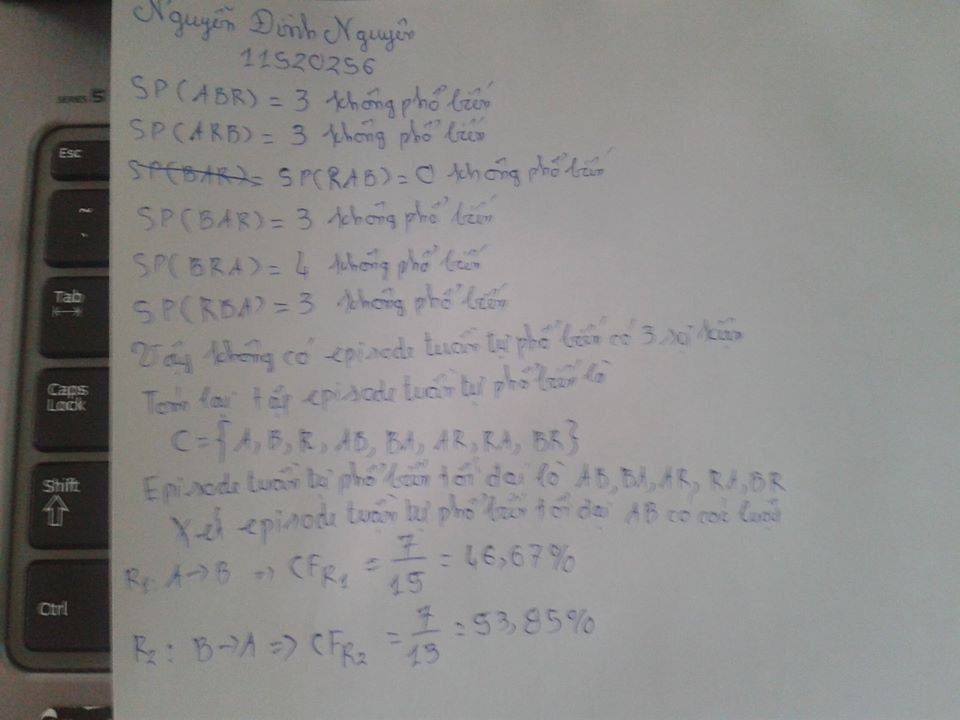 SERIES 5
Esc
~
`
Tab
Caps Lock
Shift
Ctrl
Nguyễn Đình Nguyên
11520256
SP(ABR) = 3 không phổ biến
SP(ARB) = 3 không phổ biến
SP(BAR) = SP(RAB) = 0 không phổ biến
SP(BAR) = 3 không phổ biến
SP(BRA) = 4 không phổ biến
SP(RBA) = 3 không phổ biến
Vậy không có episode tuần tự phổ biến có 3 sự kiện
Tóm lại tập episode tuần tự phổ biến là
C = {A, B, R, AB, BA, AR, RA, BR}
Episode tuần tự phổ biến tối đại là AB, BA, AR, RA, BR
Xét episode tuần tự phổ biến tối đại AB có các luật
R1: A → B => CFR1 = 7/15 = 46,67%
R2: B → A => CFR2 = 7/13 = 53,85%